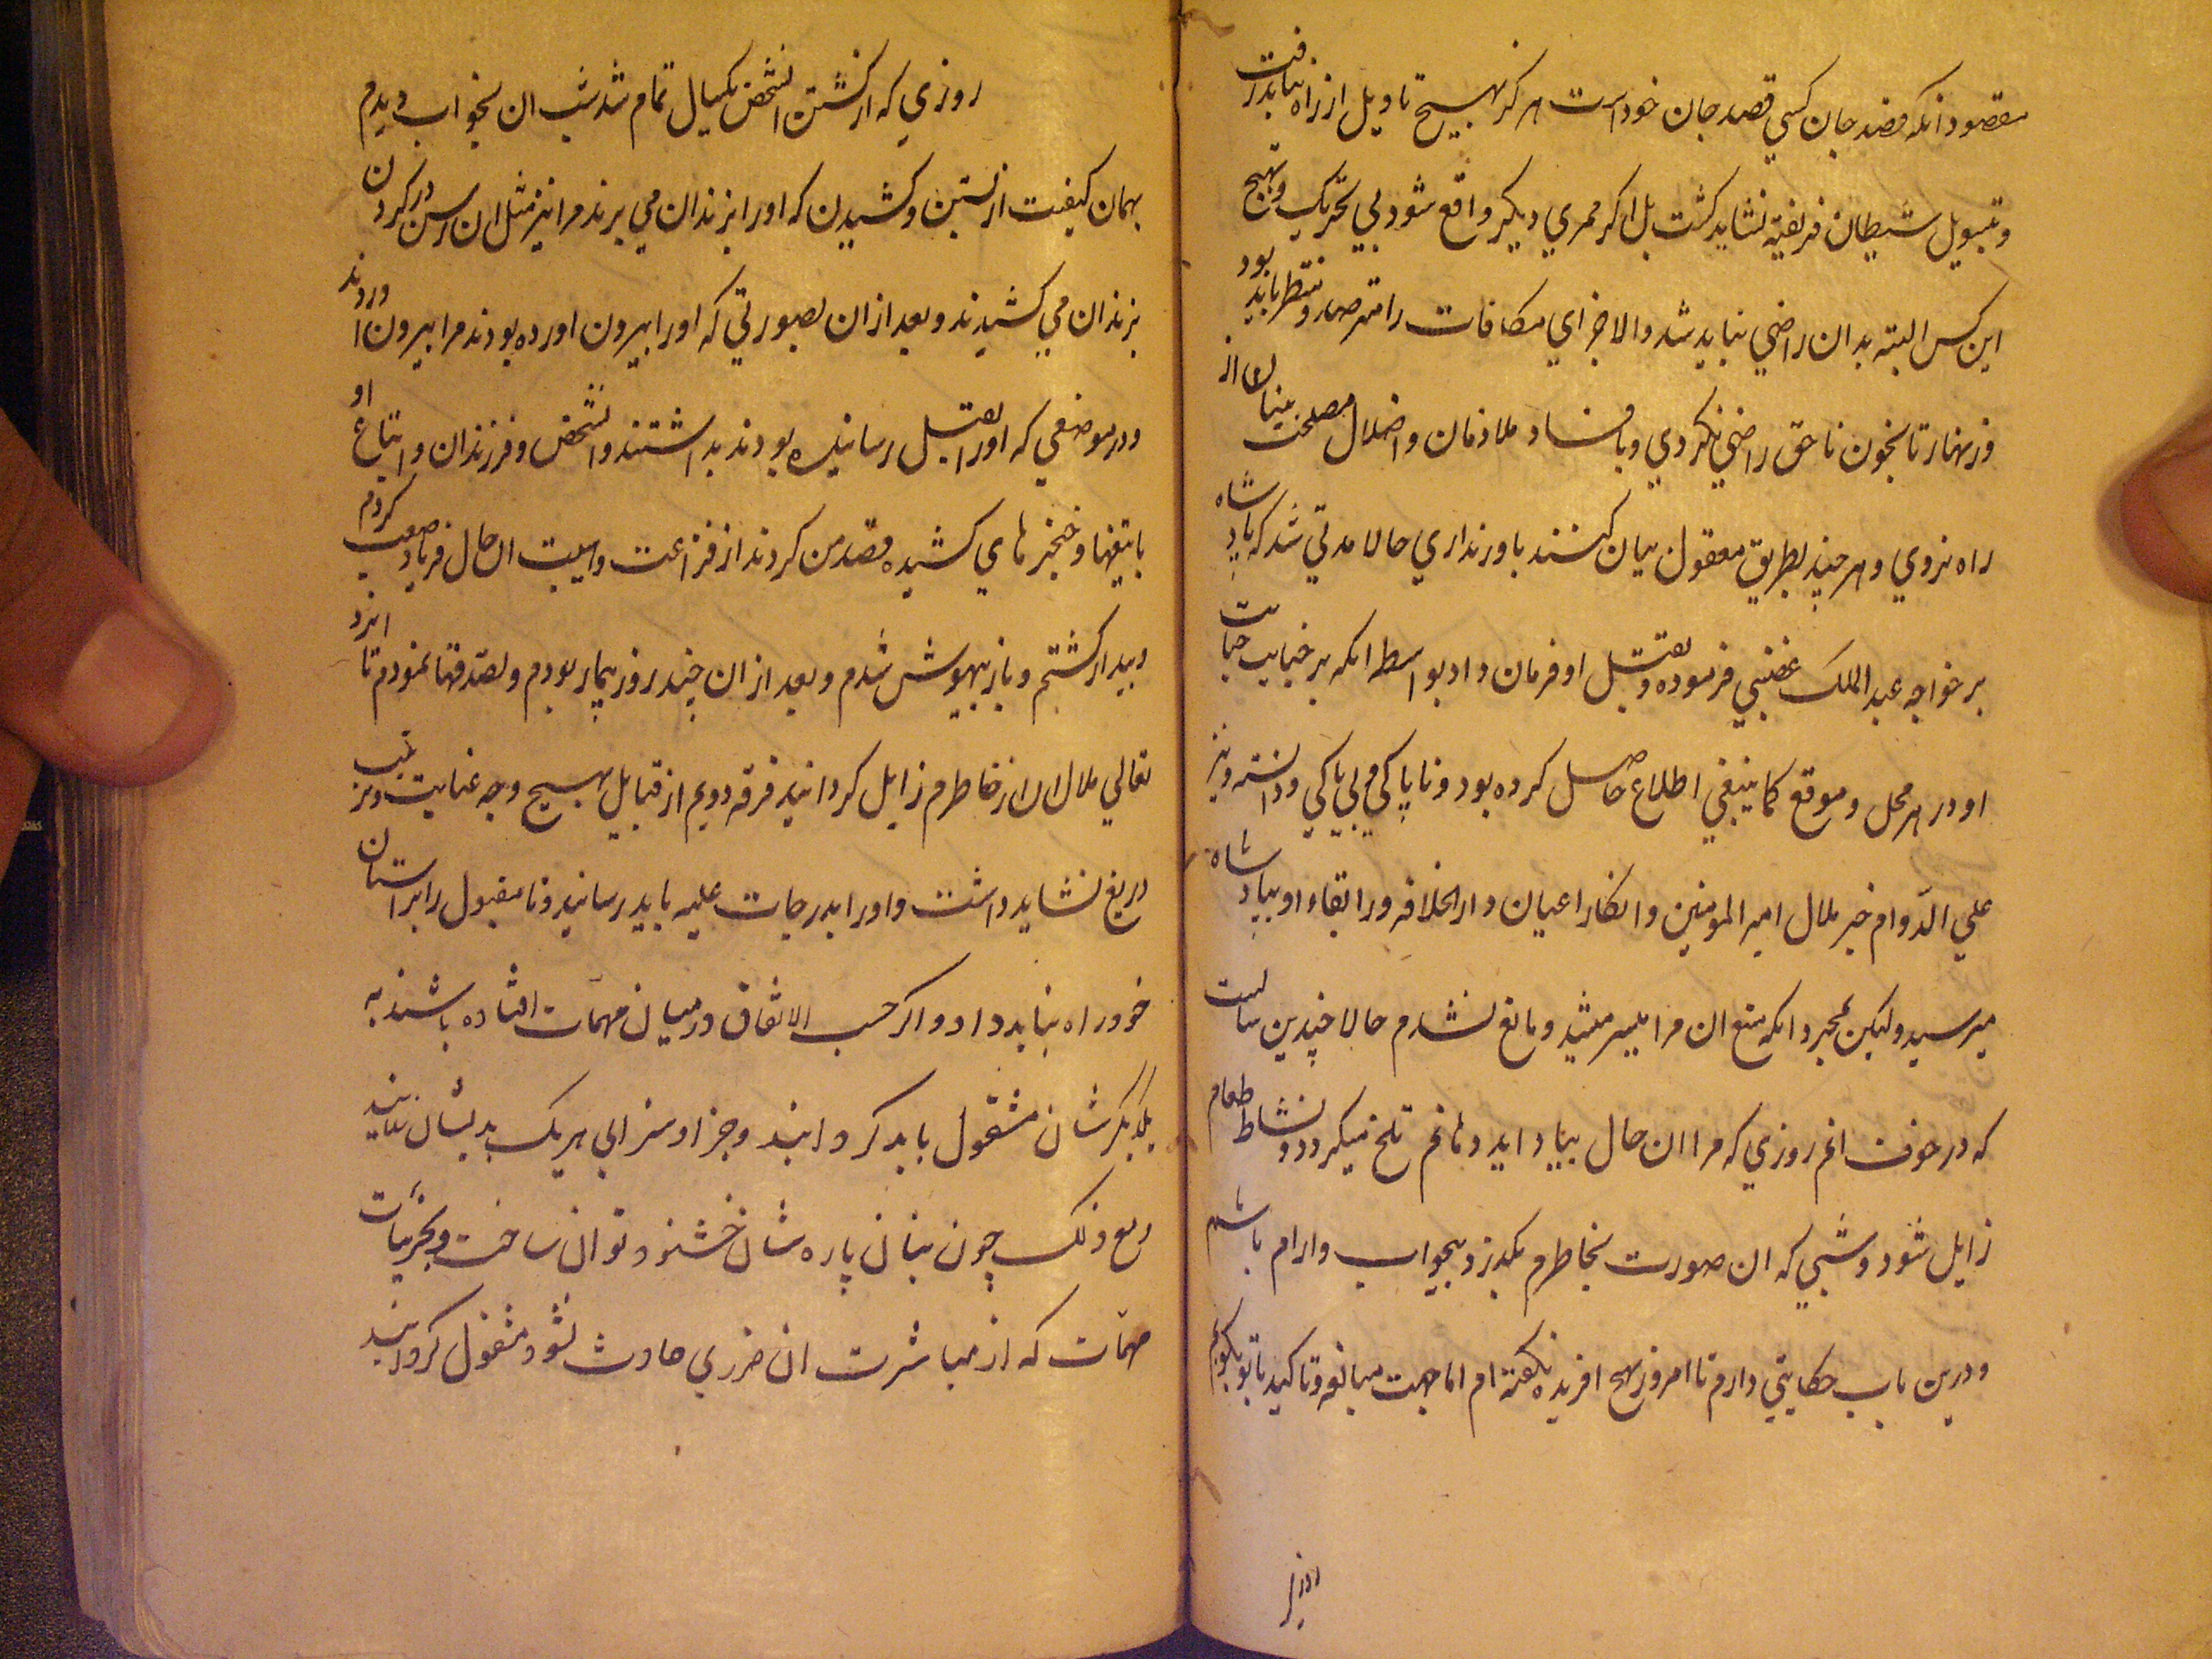 مقصود انکه قصد جان کسي قصد جان خود است هرکز بهیچ تاویل از راه نباید رفت
و بتسویل شیطان فریفته نشاید کشت بل اکر ممري دیکر واقع شود بي تحریک و تهیج
این کس البته بدان راضي نباید شد والا جزاي مکافات را مترصد و منتظر باید بود
و زنهار تا بخون ناحق راضي نکردي و بافساد ملازمان و اضلال مصلحت بینان از
راه نروي و هرچند بطریق معقول بیان کنند باور نداري حالا مدتي شد که پادشاه
بر خواجه عبد الملک غضبي فرموده و بقتل او فرمان داد بواسطه انکه بر خباثت
او در هر محل و موقع کما ینبغي اطلاع حاصل کرده بود و ناپاکي و بي باکي دانسته و نیز
علي الدوام خبر ملال امیر المومنین و انکار اعیان دار الخلافه در ابقاء او بپادشاه
میرسید ولیکن بمجرد انکه منع ان مرا میسر میشد و مانع نشدم حالا چندین سالست
که در خوف انم روزي که مرا ان حال بیاد اید دهانم تلخ میکردد و نشاط طعام
زایل شود و شبي که ان صورت بخاطرم بکذرد بیخواب و ارام باشم
و درین باب حکایتي دارم تا امروز بهیچ افریده نکفته ام اما جهت مبالغه و تاکید باتو بکویم
روزي
روزي که از کشتن انشخص یکسال تمام شد شب ان بخواب دیدم
بهمان کیفیت از بستن و کشیدن که او را بزندان مي بردند مرا نیز مثل ان رسن در کردن
بزندان مي کشیدند و بعد ازان بصورتي که او را بیرون اورده بودند مرا بیرون اوردند
و در موضعي که او را بقتل رسانیده بودند بداشتند و انشخص و فرزندان و اتباع او
با تیغها و خنجرهاي کشیده قصد من کردند از فزاعت و هیبت ان حال فریاد صعب کردم
و بیدار کشتم و باز بیهوش شدم و بعد ازان چند روز بیمار بودم و تصدقها نمودم تا ایزد
تعالي ملال ان از خاطرم زایل کردانید فرقه دویم از قبایل بهیچ وجه عنایت و تربیت
دریغ نشاید داشت و او را بدرجات علیه باید رسانید و نامقبول را براستان
خود راه نباید داد و اکر حسب الاتفاق در میان مهمات افتاده باشند به
یکدیکرشان مشغول باید کردانید و جزا و سزاي هریک بدیشان نمایند
و مع ذلک چون بنان پاره شان خشنود توان ساخت و بجزئیات
مهمات که از مباشرت ان ضرري حادث نشود مشغول کردانید